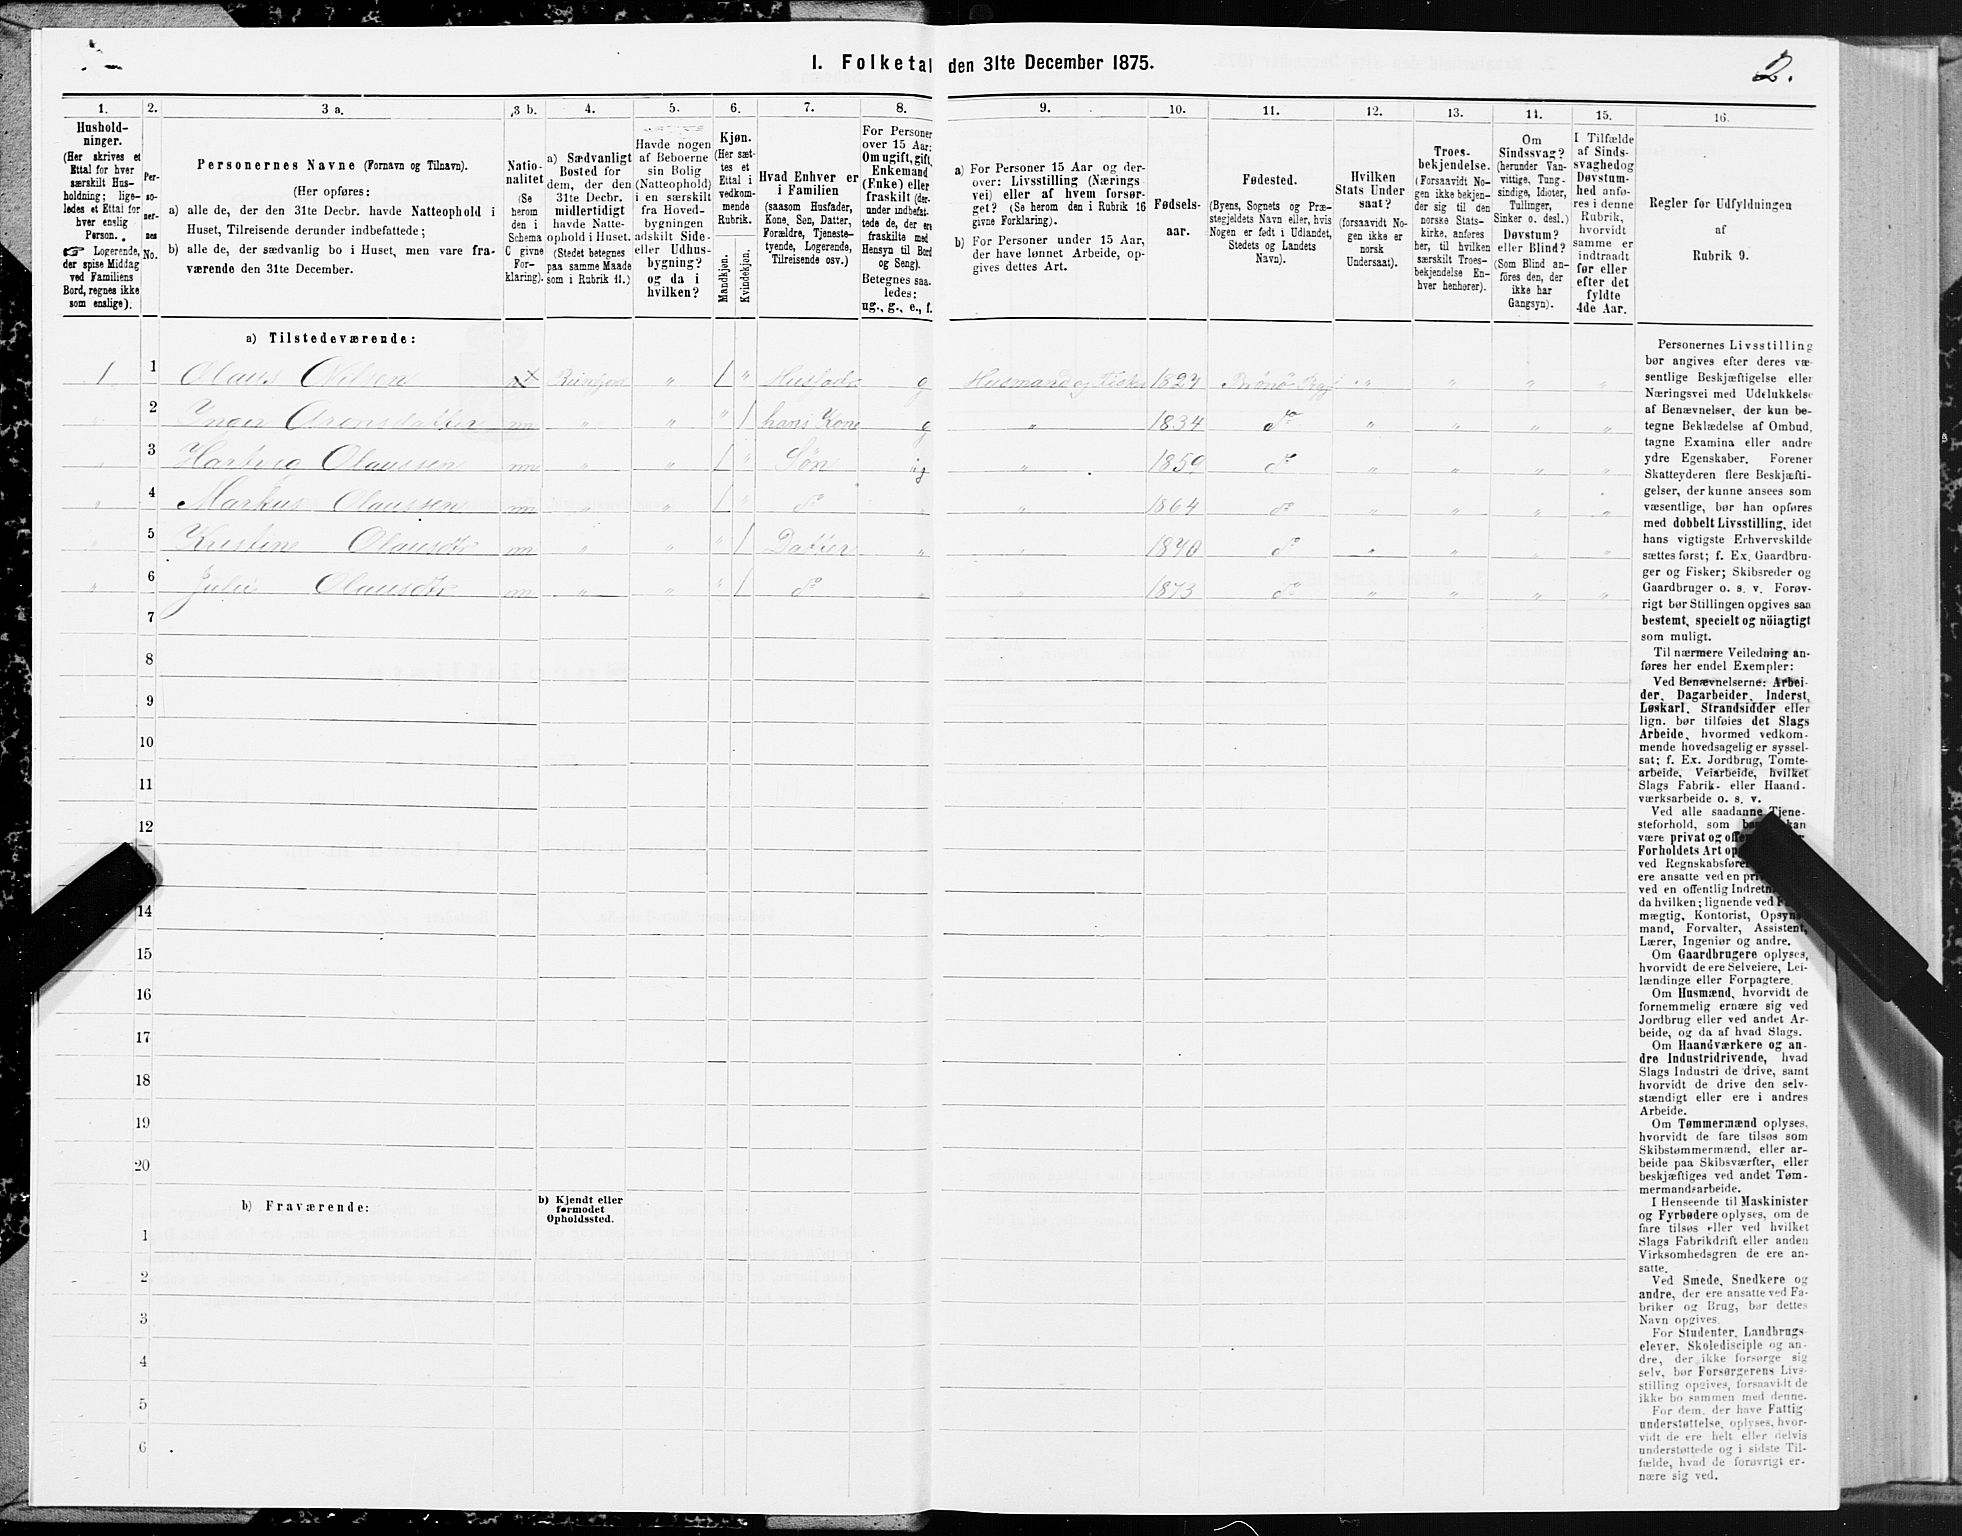 I. Folketal den 31te December 1875.
2.
1.
Hushold-
ninger.
(Her skrives et
Ettal for hver
særskilt Hus-
holdning; lige-
ledes et Ettal for
hver enslig
Person.
☞ Logerende,
der spise Middag
ved Familiens
Bord, regnes ikke
som enslige).
2.
Per-
so-
ner-
nes
No.
3 a.
Personernes Navne (Fornavn og Tilnavn).
(Her opføres:
a) alle de, der den 31te Decbr. havde Natteophold i
Huset, Tilreisende derunder indbefattede;
b) alle de, der sædvanlig bo i Huset, men vare fra-
værende den 31te December.
3 b.
Natio-
nalitet
(Se
herom
den i
Schema
C givne
For-
klaring).
4.
a) Sædvanligt
Bosted for
dem, der den
31te Decbr.
midlertidigt
havde Natte-
ophold i Huset.
(Stedet betegnes
paa samme Maade
som i Rubrik 11.)
5.
Havde nogen
af Beboerne
sin Bolig
(Natteophold)
i en særskilt
fra Hoved-
bygningen
adskilt Side-
eller Udhus-
bygning?
og da i
hvilken?
6.
Kjøn.
(Her sæt-
tes et
Ettal i
vedkom-
mende
Rubrik.
Mandkjøn.
Kvindekjøn.
7.
Hvad Enhver er
i Familien
(saasom Husfader,
Kone, Søn, Datter,
Forældre, Tjeneste-
tyende, Logerende,
Tilreisende osv.)
8.
For Personer
over 15 Aar:
Om ugift, gift,
Enkemand
(Enke) eller
fraskilt (der-
under indbefat-
tede de, der ere
fraskilte med
Hensyn til Bord
og Seng).
Betegnes saa-
ledes:
ug., g., e., f.
9.
a) For Personer 15 Aar og der-
over: Livsstilling (Nærings
vei) eller af hvem forsør-
get? (Se herom den i Rubrik 16
givne Forklaring).
b) For Personer under 15 Aar,
der have lønnet Arbeide, op-
gives dettes Art.
10.
Fødsels-
aar.
11.
Fødested.
(Byens, Sognets og Præ-
stegjeldets Navn eller, hvis
Nogen er født i Udlandet,
Stedets og Landets
Navn).
12.
Hvilken
Stats Under
saat?
(forsaavidt No-
gen ikke er
norsk
Undersaat).
13.
Troes-
bekjendelse.
(Forsaavidt No-
gen ikke bekjen-
der sig til den
norske Stats-
kirke, anføres
her, til hvilken
særskilt Troes-
bekjendelse En-
hver henhører).
14.
Om
Sindssvag?
(herunder Van-
vittige, Tung-
sindige, Idioter,
Tullinger,
Sinker o. desl.)
Døvstum?
eller Blind?
(Som Blind an-
føres den, der
ikke har
Gangsyn).
15.
I Tilfælde
af Sinds-
svaghed og
Døvstum-
hed anfø-
res i denne
Rubrik,
hvorvidt
samme er
indtraadt
før eller
efter det
fyldte
4de Aar.
16.
Regler for Udfyldningen
af
Rubrik 9.
a) Tilstedeværende:
1 1 Olaus Nilsen " 1 " g Husmand og 1827 " " " "
2 Inger Arensdatter nn " " " 1 hans Kone g " 1834 do " " " "
3 Hartvig Olaussen nn " " 1 " Søn ug " 1859 do " " " "
" 4 Markus Olaussen nn " " 1 " do " " 1864 do " " " "
" 5 Kristine Olausdtr nn " " " 1 Datter " " 1870 do " " " "
" 6 Julie Olausdtr nn " " " 1 do " " 1873 do " " " "
7
8
9
10
11
12
14
15
16
17
18
19
20
b) Fraværende:
b) Kjendt eller
formodet
Opholdssted.
1
2
3
4
5
6
Personernes Livsstilling
bør angives efter deres væ-
sentlige Beskjæftigelse eller
Næringsvei med Udelukkelse
af Benævnelser, der kun be-
tegne Beklædelse af Ombud,
tagne Examina eller andre
ydre Egenskaber. Forener
Skatteyderen flere Beskjæfti-
gelser, der kunne ansees som
væsentlige, bør han opføres
med dobbelt Livsstilling, idet
hans vigtigste Erhvervskilde
sættes først; f. Ex. Gaardbru-
ger og Fisker; Skibsreder og
Gaardbruger o. s. v. Forøv-
rigt bør Stillingen opgives saa
bestemt, specielt og nöiagtigt
som muligt.
Til nærmere Veiledning an-
føres her endel Exempler:
Ved Benævnelserne: Arbei-
der, Dagarbeider, Inderst,
Løskarl, Strandsidder eller
lign. bør tilføies det Slags
Arbeide, hvormed vedkom-
mende hovedsagelig er syssel-
sat; f. Ex. Jordbrug, Tomte-
arbeide, Veiarbeide, hvilket
Slags Fabrik- eller Haand-
værksarbeide o. s. v.
Ved alle saadanne Tjene-
steforhold, som kan
være privat og
Forholdets Art
ved
ere ansatte ved en
ved en offentlig
da hvilken; lignende ved
mægtig, Kontorist,
mand, Forvalter, Assistent,
Lærer, Ingeniør og andre.
Om Gaardbrugere oplyses,
hvorvidt de ere Selveiere, Lei-
lændinge eller Forpagtere.
Om Husmænd, hvorvidt de
fornemmelig ernære sig ved
Jordbrug eller ved andet Ar-
beide, og da af hvad Slags.
Om Haandværkere og an-
dre Industridrivende, hvad
Slags Industri de drive, samt
hvorvidt de drive den selv-
stændigt eller ere i andres
Arbeide.
Om Tømmermænd oplyses,
hvorvidt de fare tilsøs som
Skibstømmermænd, eller ar-
beide paa Skibsværfter, eller
beskjæftiges ved andet Tøm-
mermandsarbeide.
I Henseende til Maskinister
og Fyrbødere oplyses, om de
fare tilsøs eller ved hvilket
Slags Fabrikdrift eller anden
Virksomhedsgren de ere an-
satte.
Ved Smede, Snedkere og
andre, der ere ansatte ved Fa-
briker og Brug, bør dettes
Navn opgives.
For Studenter, Landbrugs-
elever, Skoledisciple og an-
dre, der ikke forsørge sig
selv, bør Forsørgerens Livs-
stilling opgives, forsaavidt de
ikke bo sammen med denne.
For dem, der have Fattig
understøttelse, oplyses, hvor-
vidt de ere helt eller delvis
understøttede og i sidste Til-
fælde, hvad de forøvrigt er-
nære sig ved.